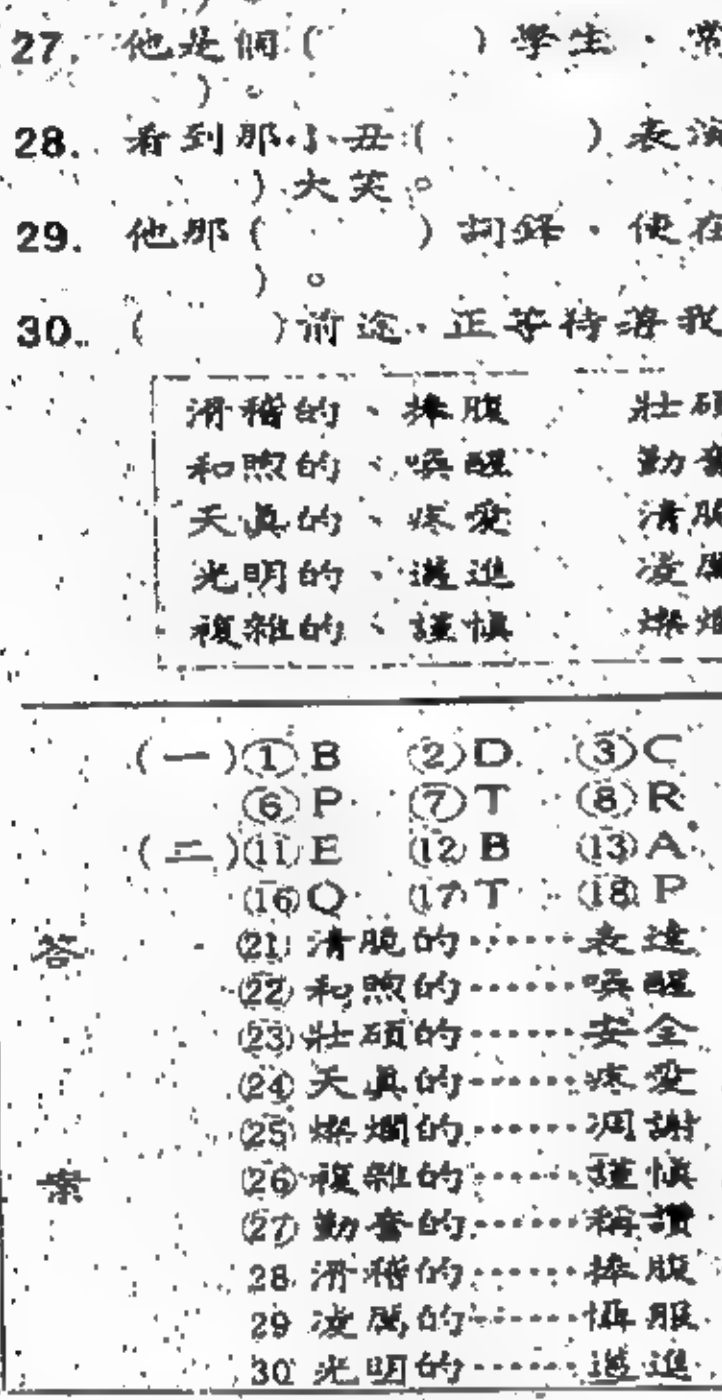 27. 他是個(　　　)學生，常
)。
28. 看到那小丑(　　　)表演
)大笑。
29. 他那(　　　)詞鋒，使在
)。
30. (　　　)前途，正等待著我
滑稽的、捧腹　壯碩
和煦的、喚醒　勤奮
天眞的、疼愛　清脆
光明的、邁進　凌厲
複雜的、謹愼　燦爛
答案
(一)①B ②D ③C
⑥P ⑦T ⑧R
(二)⑪E ⑫B ⑬A
⑯Q ⑰T ⑱P
㉑清脆的……表達
㉒和煦的……喚醒
㉓壯碩的……安全
㉔天眞的……疼愛
㉕燦爛的……凋謝
㉖複雜的……謹愼
㉗勤奮的……稱讚
28 滑稽的……捧腹
29 凌厲的……懾服
30 光明的……邁進